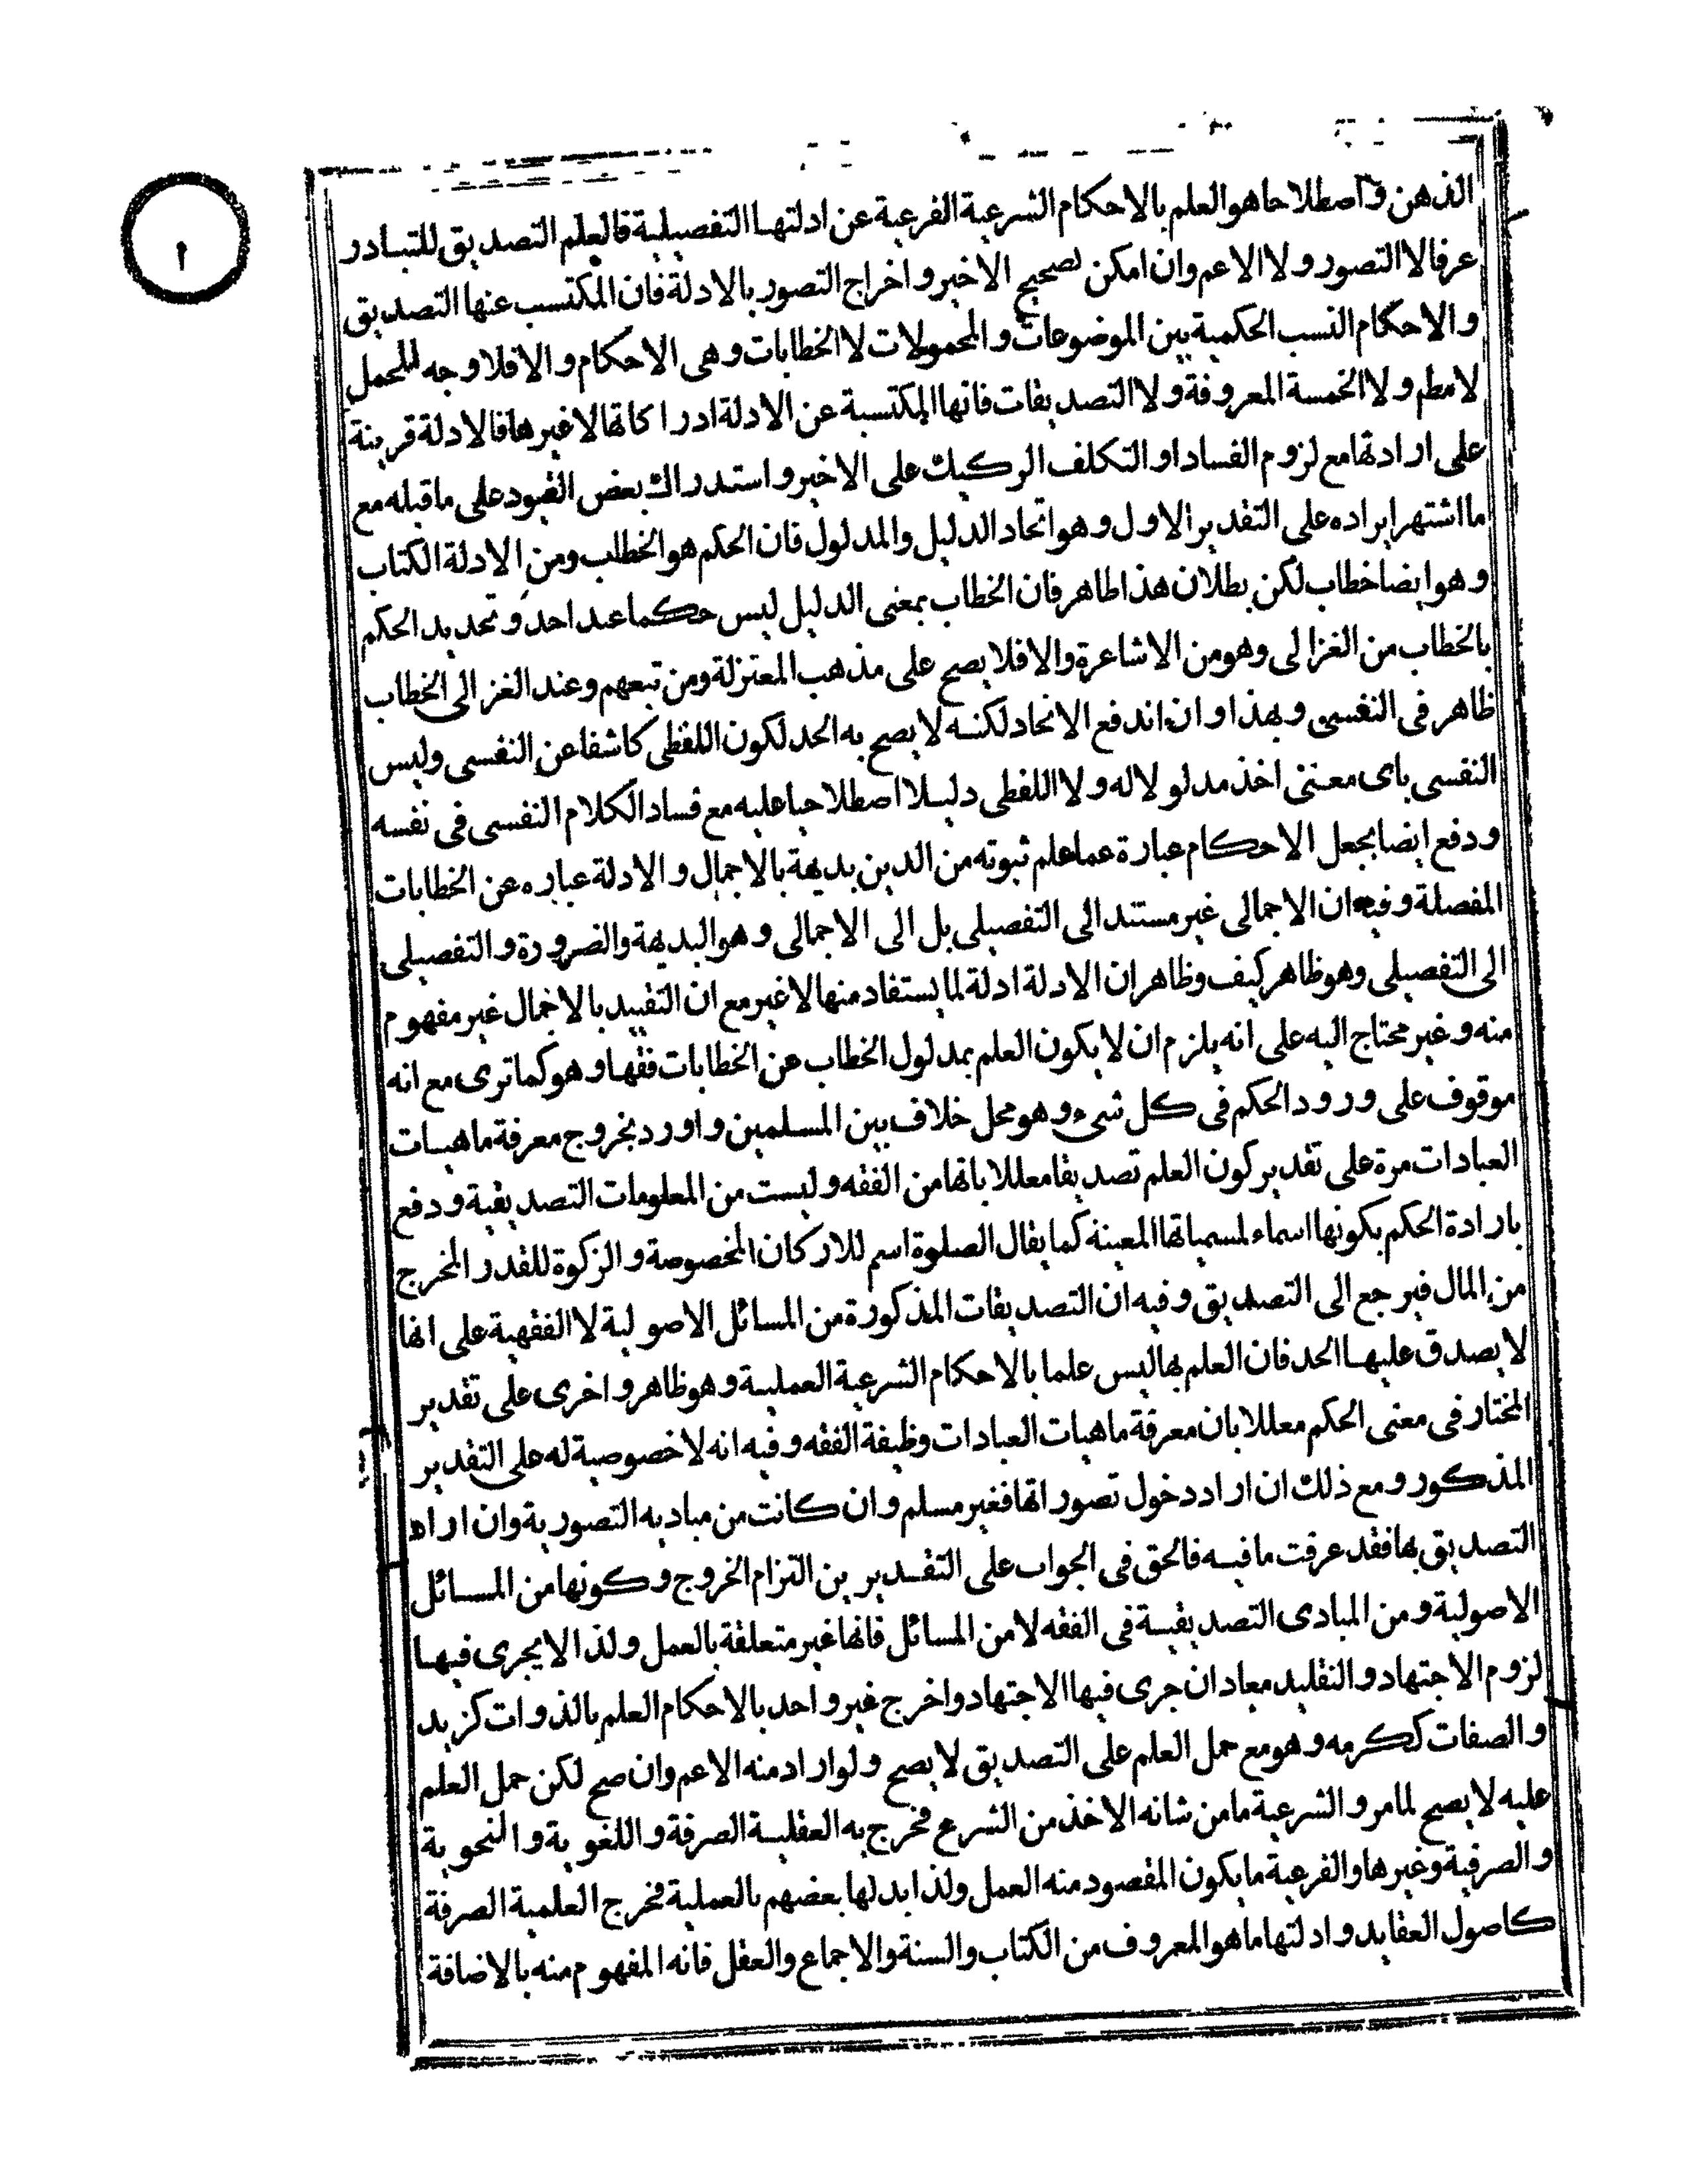 ١
الذهن واصطلاحا هو العلم بالاحكام الشرعية الفرعية عن ادلتها التفصيلية فالعلم التصديق للتبادر
عرفا لا التصور ولا الاعم وان امكن تصحيح الاخير واخراج التصور بالادلة فان المكتسب عنها التصديق
والاحكام النسب الحكمية بين الموضوعات والمحمولات لا الخطابات وهى الاحكام والا فلا وجه للحمل
لا مطم ولا الخمسة المعروفة ولا التصديقات فانها المكتسبة عن الادلة ادراكاتها لا غيرها فالادلة قرينة
على ارادتها مع لزوم الفساد او التكلف الركيك على الاخير واستدراك بعض القيود على ما قبله مع
ما اشتهر ايراده على التقدير الاول وهو اتحاد الدليل والمدلول فان الحكم هو الخطاب ومن الادلة الكتاب
وهو ايضا خطاب لكن بطلان هذا ظاهر فان الخطاب بمعنى الدليل ليس حكما عند احد وتحديد الحكم
بالخطاب من الغزالى وهو من الاشاعرة والا فلا يصح على مذهب المعتزلة ومن تبعهم وعند الغزالى الخطاب
ظاهر فى النفسى وبهذا وان اندفع الاتحاد لكنه لا يصح به الحد لكون اللفظى كاشفا عن النفسى وليس
النفسى باى معنى اخذ مدلولا له ولا اللفظى دليلا اصطلاحيا عليه مع فساد الكلام النفسى فى نفسه
ودفع ايضا بجعل الاحكام عبارة عما علم ثبوته من الدين بديهة بالاجمال والادلة عباره عن الخطابات
المفصلة وفيه ان الاجمالى غير مستند الى التفصيلى بل الى الاجمالى وهو البديهة والضرورة والتفصيلى
الى التفصيلى وهو ظاهر كيف وظاهر ان الادلة ادلة لما يستفاد منها لا غير مع ان التقييد بالاجمال غير مفهوم
منه وغير محتاج اليه على انه يلزم ان لا يكون العلم بمدلول الخطاب عن الخطابات فقها وهو كما ترى مع انه
موقوف على ورود الحكم فى كل شىء وهو محل خلاف بين المسلمين واورد بخروج معرفة ماهيات
العبادات مرة على تقدير كون العلم تصديقا معللا بانها من الفقه وليست من المعلومات التصديقية ودفع
بارادة الحكم بكونها اسماء لمسمياتها المعينة كما يقال الصلوة اسم للاركان المخصوصة والزكوة للقدر المخرج
من المال فيرجع الى التصديق وفيه ان التصديقات المذكورة من المسائل الاصولية لا الفقهية على انها
لا يصدق عليها الحد فان العلم بها ليس علما بالاحكام الشرعية العملية وهو ظاهر واخرى على تقدير
المختار فى معنى الحكم معللا بان معرفة ماهيات العبادات وظيفة الفقه وفيه انه لا خصوصية له على التقدير
المذكور ومع ذلك ان اراد دخول تصوراتها فغير مسلم وان كانت من مباديه التصورية وان اراد
التصديق بها فقد عرفت ما فيه فالحق فى الجواب على التقديرين التزام الخروج وكونها من المسائل
الاصولية ومن المبادى التصديقية فى الفقه لا من المسائل فانها غير متعلقة بالعمل ولذا لا يجرى فيها
لزوم الاجتهاد والتقليد معا وان جرى فيها الاجتهاد واخرج غير واحد بالاحكام العلم بالذوات كزيد
والصفات ككرمه وهو مع حمل العلم على التصديق لا يصح ولو اراد منه الاعم وان صح لكن حمل العلم
عليه لا يصح لما مر والشرعية ما من شانه الاخذ من الشرع فخرج به العقلية الصرفة واللغوية والنحوية
والصرفية وغيرها والفرعية ما يكون المقصود منه العمل ولذا بدلها بعضهم بالعملية فخرج العلمية الصرفة
كاصول العقايد وادلتها ما هو المعروف من الكتاب والسنة والاجماع والعقل فانه المفهوم منه بالاضافة